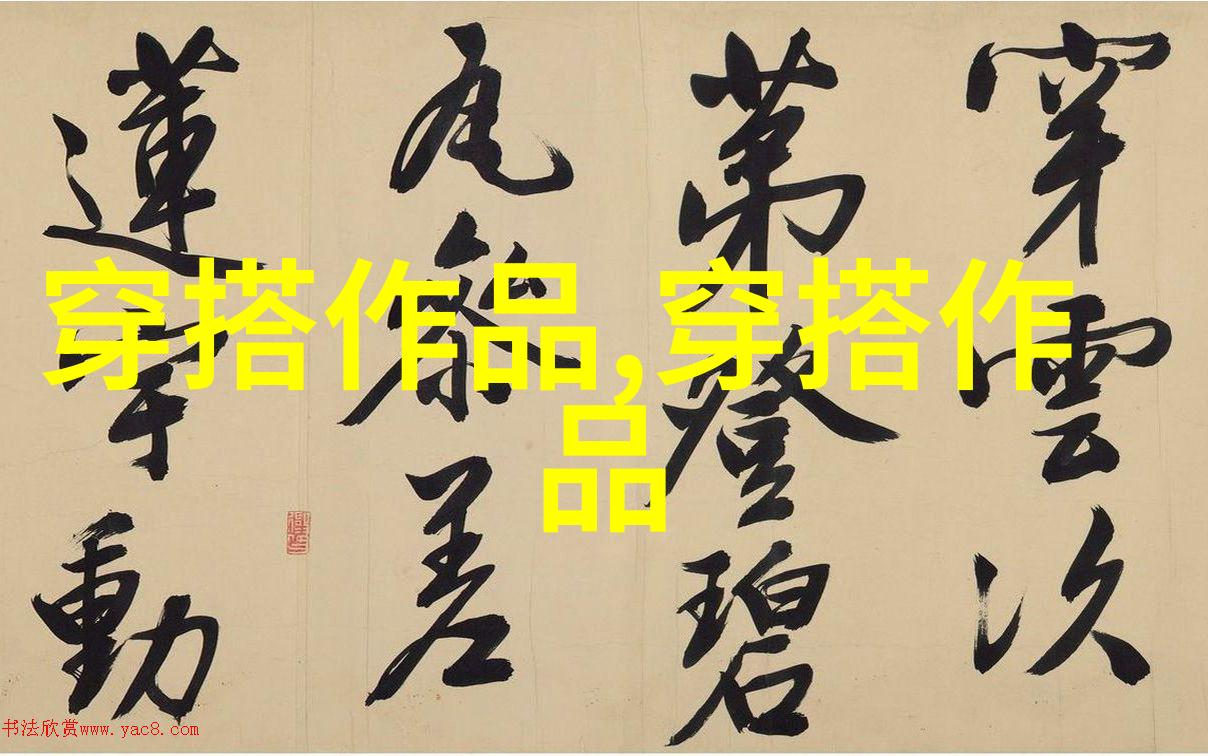 穿雲次
第登碧
瓦參差
蓮宇動
穿搭作品,穿搭作
品
书法欣赏www.yac8.com